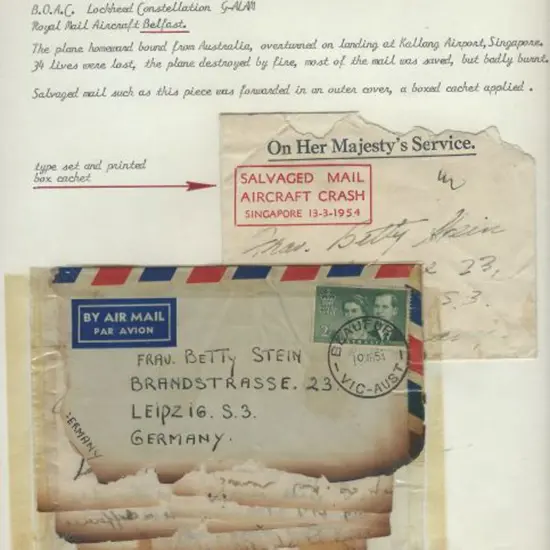 B.O.A.C. Lockheed Constellation G-ALAM
Royal Mail Aircraft Belfast.
The plane homeward bound from Australia, overturned on landing at Kallang Airport, Singapore.
34 lives were lost, the plane destroyed by fire, most of the mail was saved, but badly burnt.
Salvaged mail such as this piece was forwarded in an outer cover, a boxed cachet applied.
type set and printed
box cachet
On Her Majesty's Service.
SALVAGED MAIL
AIRCRAFT CRASH
SINGAPORE 13-3-1954
Frau. Betty Stein
23,
S.3.
BY AIR MAIL
PAR AVION
BEAUFORT
VIC-AUST
FRAU. BETTY STEIN
BRANDSTRASSE. 23.
LEIPZIG. S.3.
GERMANY.
GERMANY